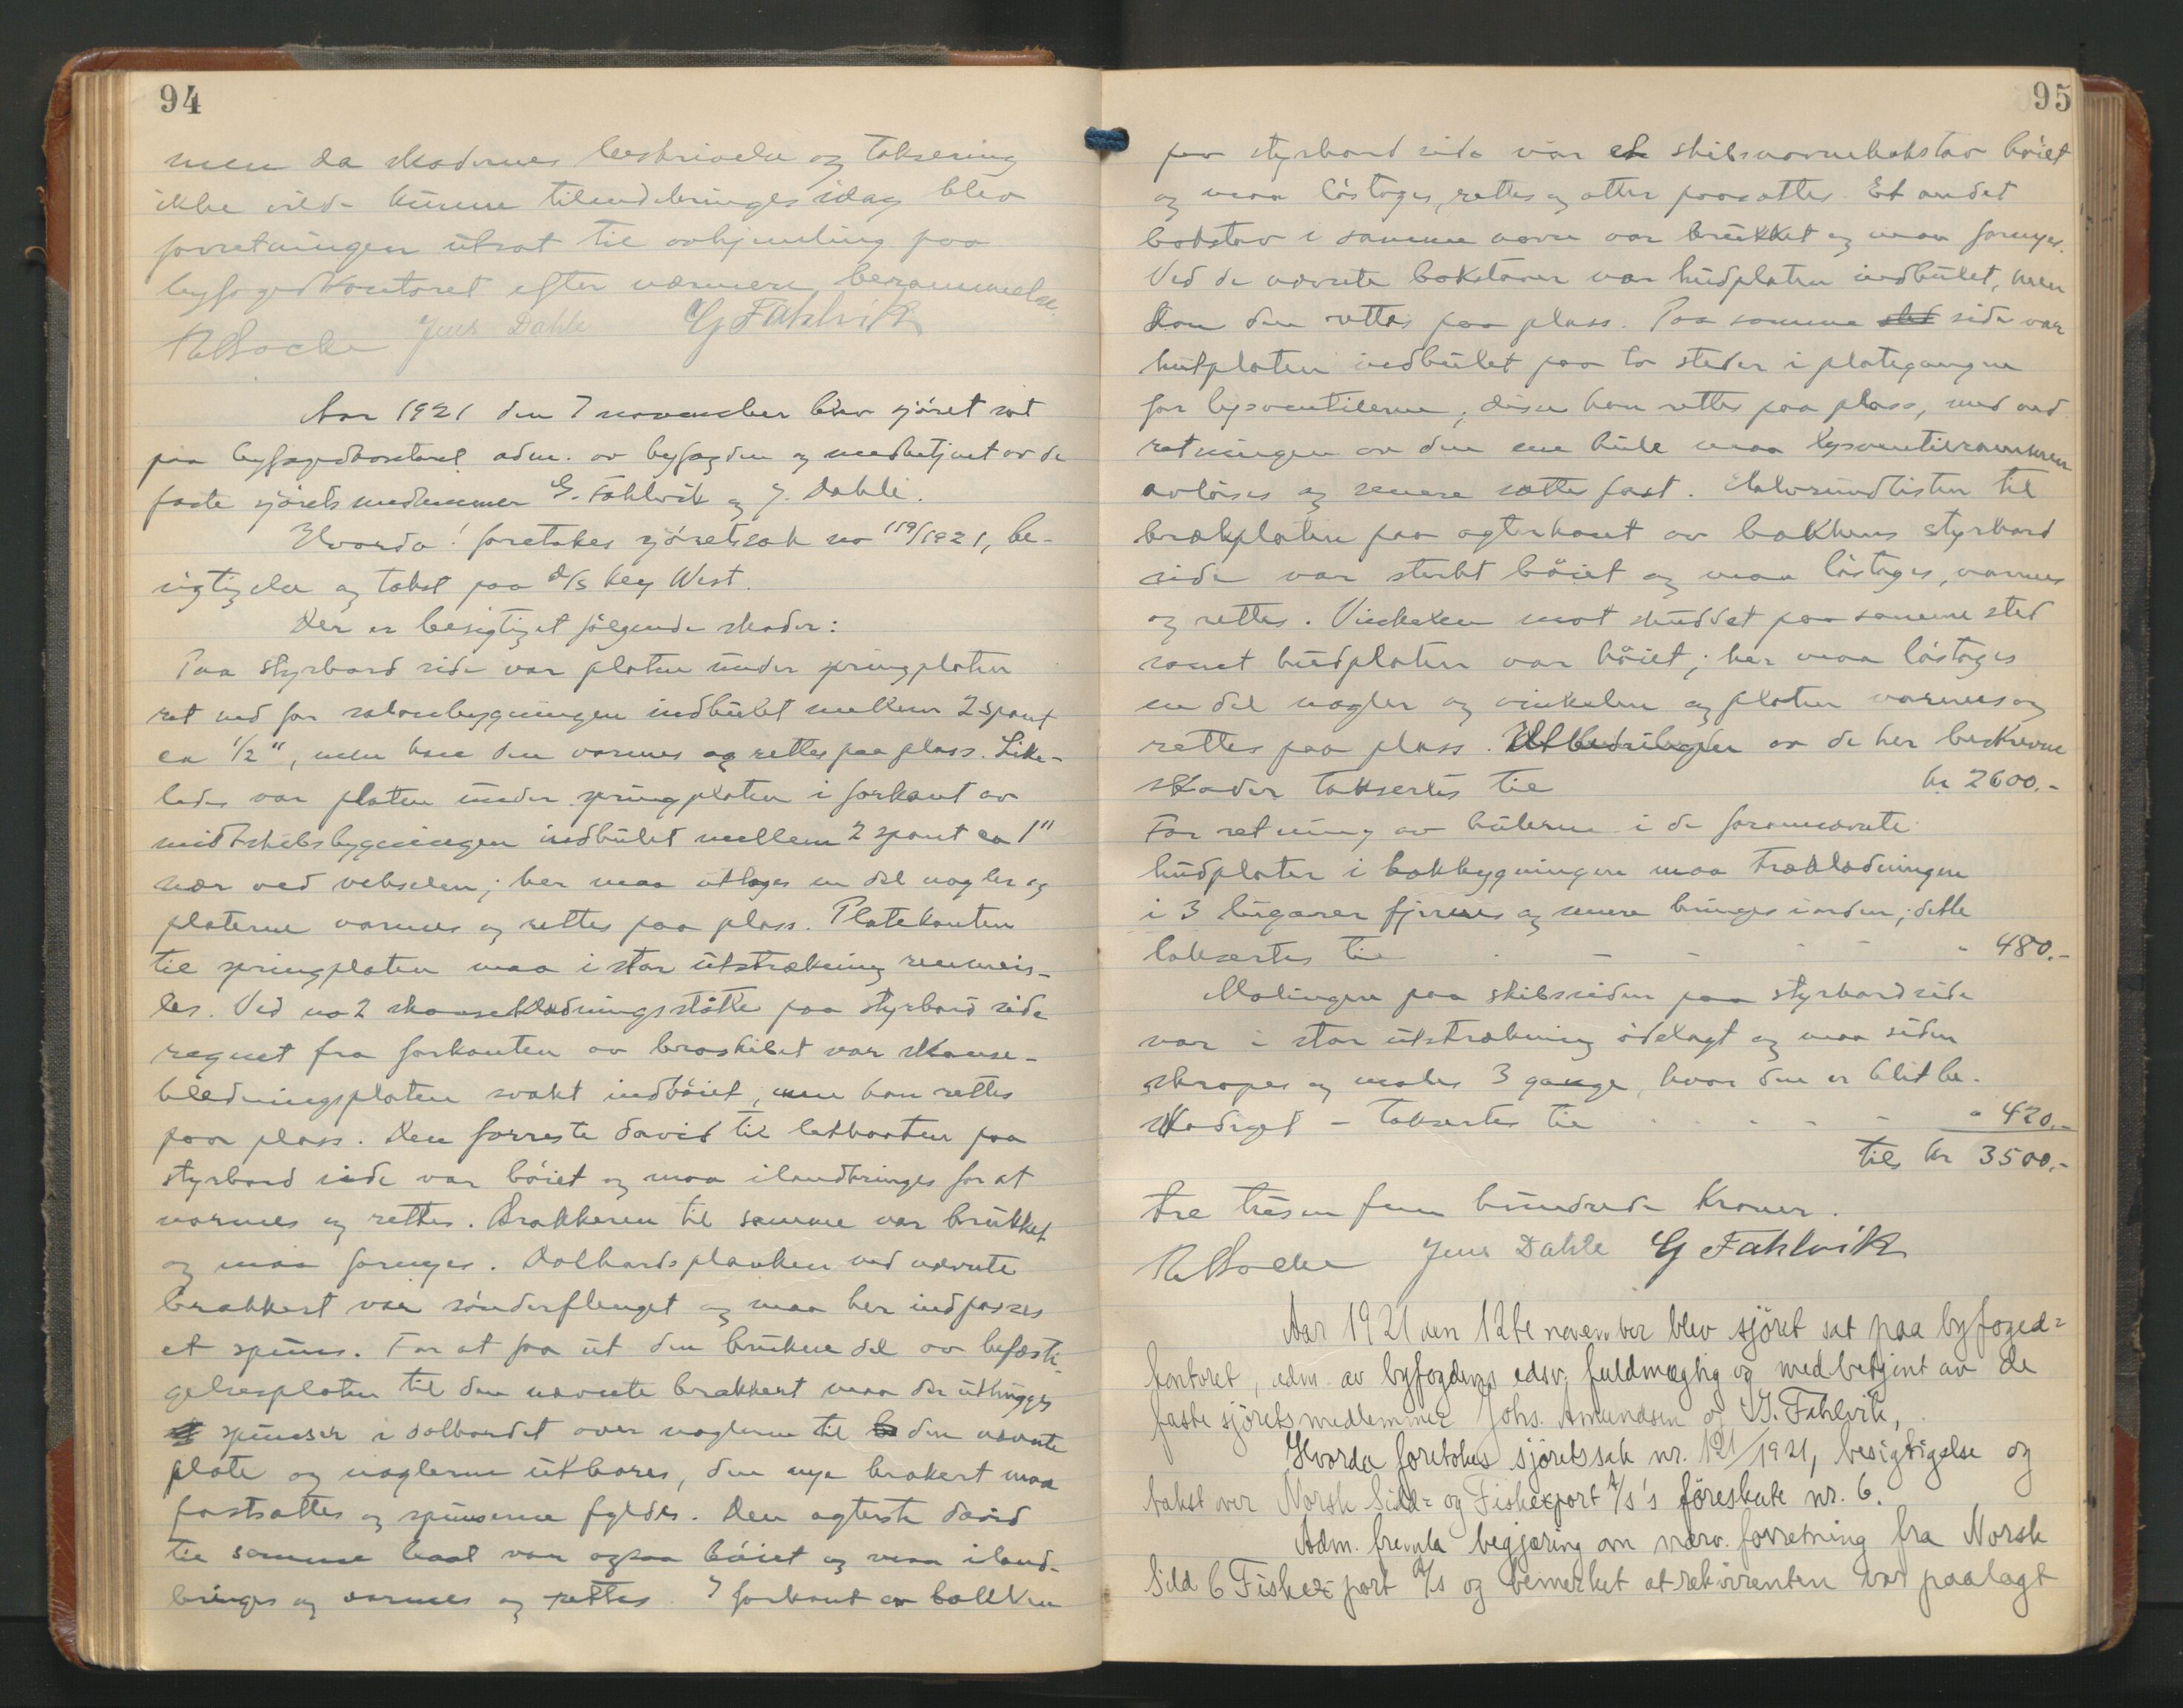 94
men da skadernes beskrivelse og taksering
ikke vilde kunne tilendebringes idag blev
forretningen utsat til avhjemling paa
byfogedkontoret efter nærmere berammelse.
Jens Dahle G Fahlvik
Aar 1921 den 7 november blev sjöret sat
paa byfogedkontoret adm. av byfogden og medbetjent av de
faste sjöretsmedlemmer G. Fahlvik og J. Dahle.
Hvorda! foretokes sjöretssak no 119/1921, be-
sigtigelse og takst paa d/s Key West.
Der er besigtiget følgende skader:
Paa styrbord side var platen under springplaten
ret ned for salonbygningen indbulet mellem 2 spant
ca 1/2", men kan den varmes og rettes paa plass. Like-
ledes var platen under springplaten i forkant av
midtskibsbygningen indbulet mellem 2 spant ca 1"
nær ved vekselen; her maa uttages en del nagler og
platerne varmes og rettes paa plass. Platekanten
til springplaten maa i stor utstrækning renmeis-
les. Ved no 2 skanseklædningsstötte paa styrbord side
regnet fra forkanten av broskibet var skanse-
klædningsplaten svakt indböiet, men kan rettes
paa plass. Den forreste david til letbaaten paa
styrbord side var böiet og maa ilandbringes for at
varmes og rettes. Brakketen til samme var brukket
og maa fornyes. Dolbordsplanken ved nævnte
brakket var sönderflenget og maa her indpasses
et spuns. For at faa ut den brukne del av befæsti-
gelsesplaten til den nævnte brakket maa der uthugges
spunser i dolbordet over naglerne til den nævnte
plate og naglerne utbores, den nye braket maa
fastsættes og spunserne fyldes. Den agterste david
til samme baat var ogsaa böiet og maa iland-
bringes og varmes og rettes. I forkant av bakken
95
paa styrbord side var et skibsnavnebokstav böiet
og maa löstages, rettes og atter paasættes. Et andet
bokstav i samme navn var brukket og maa fornyes.
Ved de nævnte bokstaver var hudplaten indbulet, men
kan den rettes paa plass. Paa samme sted side var
hudplaten indbulet paa to steder i plategangen
for lysventilerne, disse kan rettes paa plass, med ved
retningen av den ene bule maa lysventilrammen
avlöses og senere sættes fast. Halvrundlisten til
brækplaten paa agterkant av bakkens styrbord
side var sterkt böiet og maa löstages, varmes
og rettes. Vinkelen mot skuddet paa samme sted
samt hudplaten var böiet; her maa löstages
en del nagler og vinkelen og platen varmes og
rettes paa plass. Utbedringen av de her beskrevne
skader taksertes til kr 2600.-
For retning av bulerne i de forannævnte
hudplater i bakbygningen maa træklædningen
i 3 lugarer fjernes og senere bringes i orden; dette
taksertes til - - - - " 480.-
Malingen paa skibssiden paa styrbord side
var i stor utstrækning ödelagt og maa siden
skrapes og males 3 gange, hvor den er blit be-
skadiget - taksertes til - - - " 420.-
tils kr 3500.-
tre tusen fem hundrede Kroner.
Jens Dahle G Fahlvik
Aar 1921 den 12te november blev sjöret sat paa byfoged-
kontoret, adm. av byfogdens edsv. fuldmægtig og medbetjent av de
faste sjöretsmedlemmer Johs. Amundsen og G. Fahlvik,
Hvorda foretokes sjöretssak nr. 121/1921, besigtigelse og
takst over Norsk Sild- og Fiskexport A/S's föreskute nr. 6.
Adm. fremla begjæring om nærv. forretning fra Norsk
Sild & Fiskexport A/S og bemerket at rekvirenten var paalagt